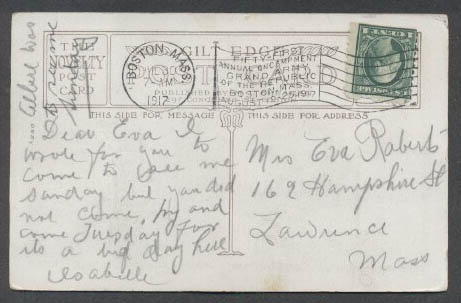 Albert was
to see me
Sunday
THE
NOVELTY
POST
CARD
GILT EDGE
POST CARD
PUBLISHED BY
BOSTON, MASS.
730
AM
1917
FIFTY-FIRST
ANNUAL ENCAMPMENT
GRAND ARMY
OF THE REPUBLIC
BOSTON, MASS.
AUGUST 1917
THIS SIDE FOR MESSAGE
THIS SIDE FOR ADDRESS
Dear Eva I
wrote for you to
come to see me
Sunday but you did
not come, and
come Tuesday for
its a big day here
Isabelle
Mis Eva Roberts
162 Hampshire St
Lawrence
Mass